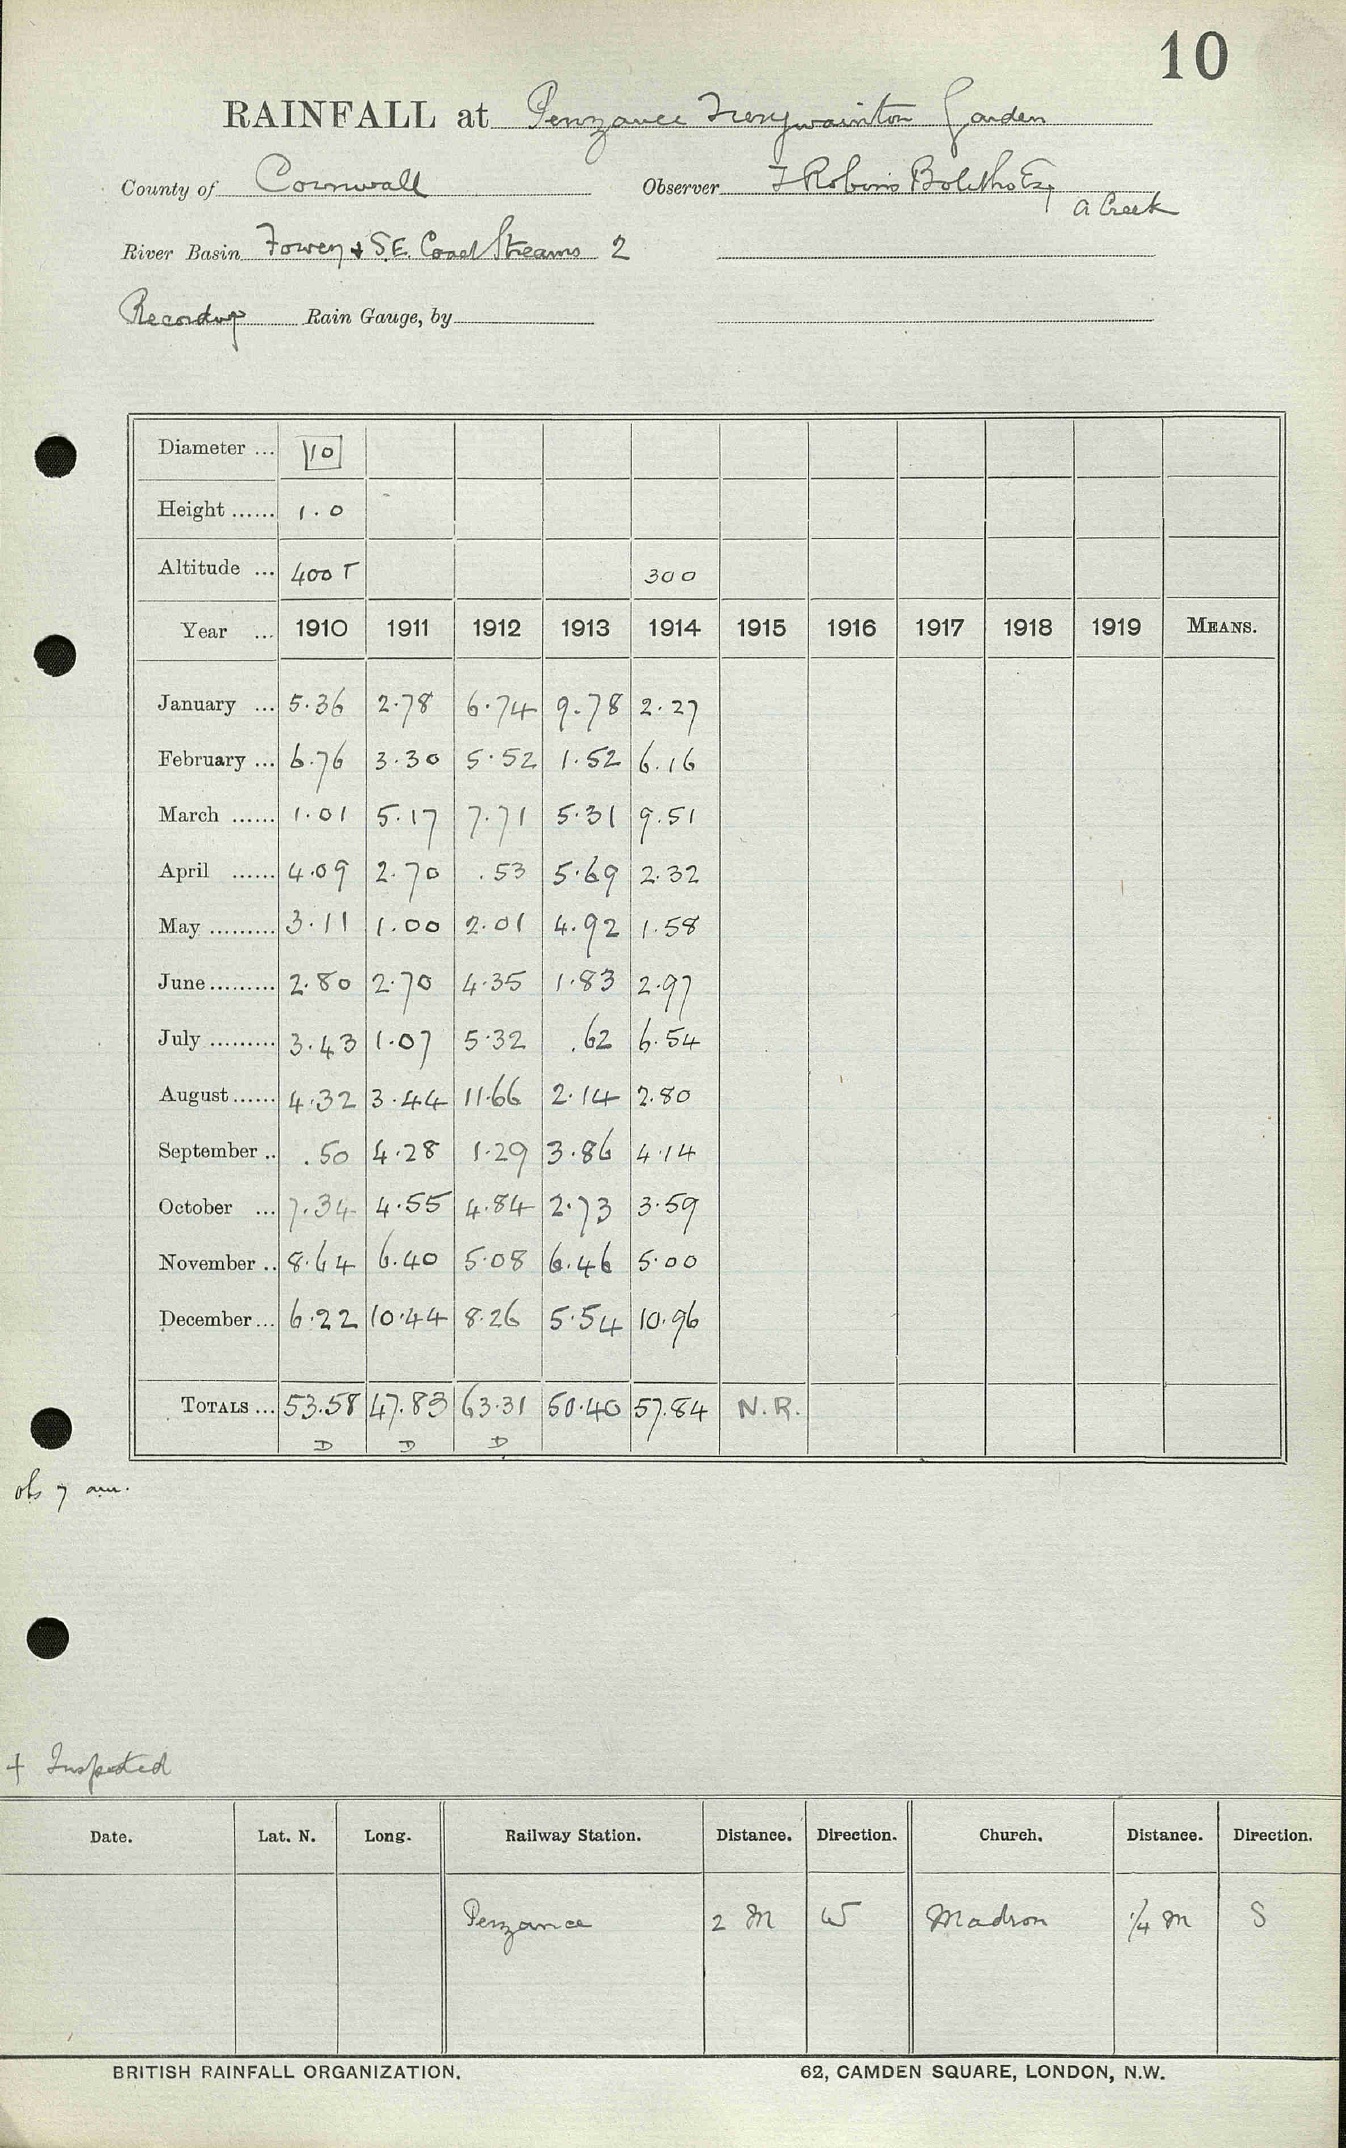 10
RAINFALL at Penzance Trengwainton Garden
County of Cornwall Observer T Robins Bolitho Esq
A Creek
River Basin Fowey & S.E. Coast Streams 2
Recording Rain Gauge, by
Diameter ... 10
Height ...... 1.0
Altitude ... 400 T 300
Year ... 1910 1911 1912 1913 1914 1915 1916 1917 1918 1919 MEANS.
January ... 5.36 2.78 6.74 9.78 2.27
February ... 6.76 3.30 5.52 1.52 6.16
March ...... 1.01 5.17 7.71 5.31 9.51
April ...... 4.09 2.70 .53 5.69 2.32
May ......... 3.11 1.00 2.01 4.92 1.58
June ......... 2.80 2.70 4.35 1.83 2.97
July ......... 3.43 1.07 5.32 .62 6.54
August ...... 4.32 3.44 11.66 2.14 2.80
September .. .50 4.28 1.29 3.86 4.14
October ... 7.34 4.55 4.84 2.73 3.59
November .. 8.64 6.40 5.08 6.46 5.00
December ... 6.22 10.44 8.26 5.54 10.96
TOTALS ... 53.58 47.83 63.31 50.40 57.84 N.R.
D D D
obs 7 am.
+ Inspected
Date. Lat. N. Long. Railway Station. Distance. Direction. Church. Distance. Direction.
Penzance 2 M W Madron 1/4 m S
BRITISH RAINFALL ORGANIZATION. 62, CAMDEN SQUARE, LONDON, N.W.